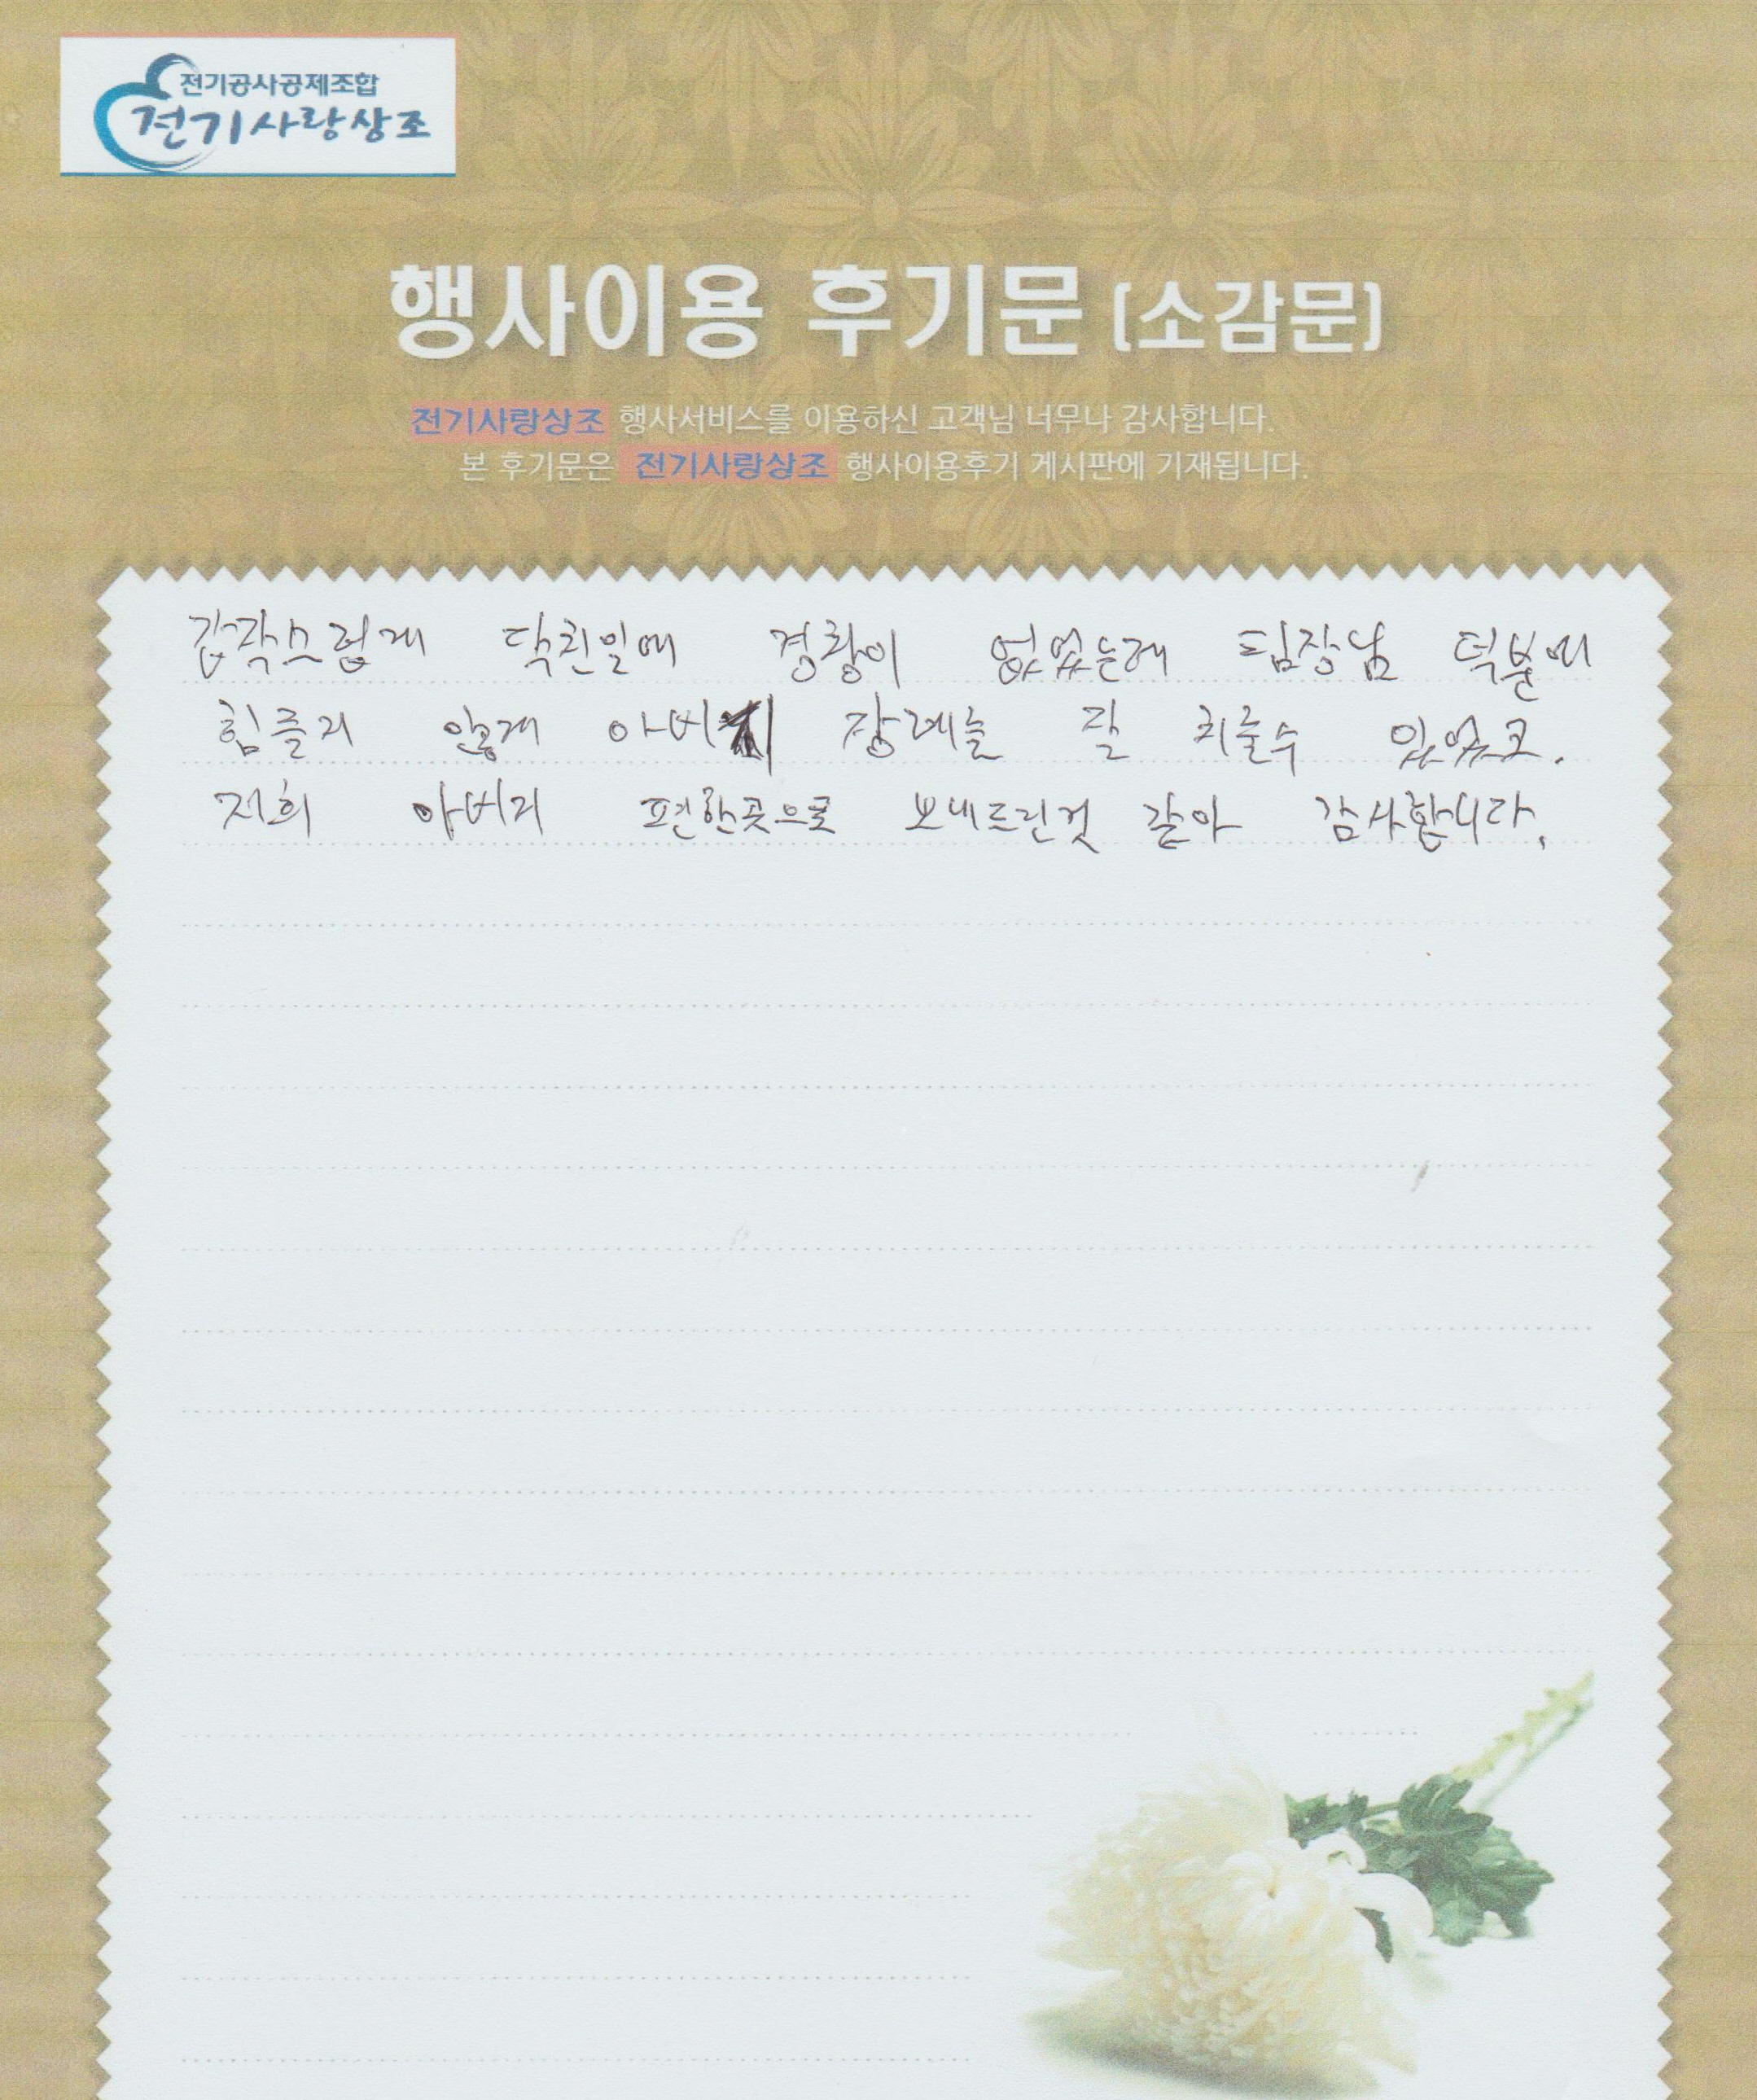 전기공사공제조합
전기사랑상조
행사이용 후기문 (소감문)
전기사랑상조 행사서비스를 이용하신 고객님 너무나 감사합니다.
본 후기문은 전기사랑상조 행사이용후기 게시판에 기재됩니다.
갑작스럽게 닥친일에 경황이 없었는데 팀장님 덕분에
힘들지 않게 아버지 장례를 잘 치룰수 있었고.
저희 아버지 편한곳으로 보내드린것 같아 감사합니다.